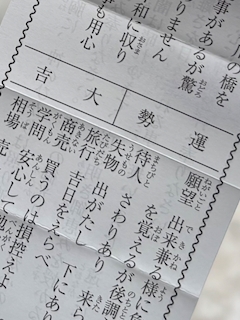 の橋を
事があるが驚
りません
和に収り
も用心
運勢 大吉
願望 出来兼る様に
を覚えるが後調
待人 さわりあり 来ら
失物 出がたし 下にあり
旅行 吉日をえらべ
商売 買うのは損控えよ
学問 安心して
相場 売